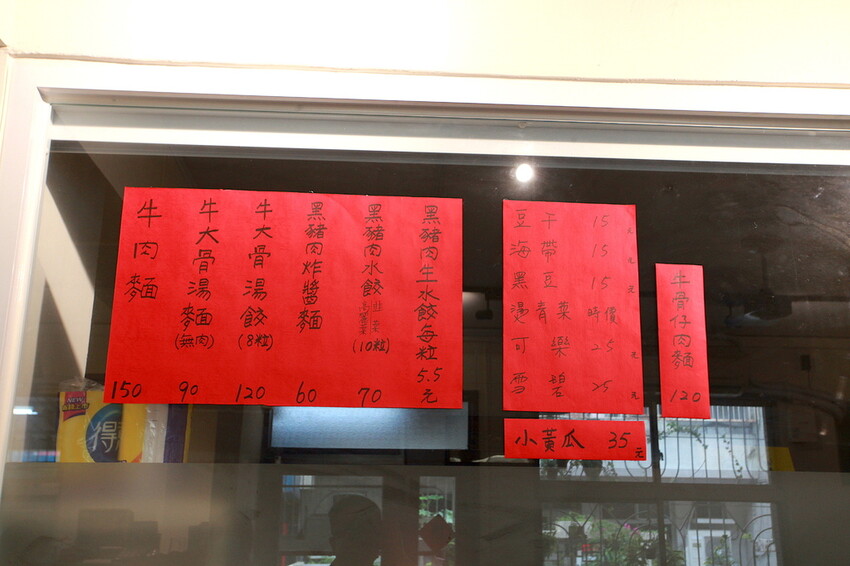 牛肉麵 150
牛大骨湯麵(無肉) 90
牛大骨湯餃(8粒) 120
黑豬肉炸醬麵 60
黑豬肉水餃 韭菜 高麗菜 (10粒) 70
黑豬肉生水餃每粒5.5元
豆干 15元
海帶 15元
黑豆 15元
燙青菜 時價
可樂 25元
雪碧 25元
小黃瓜 35元
牛骨仔肉麵 120
NEW
得